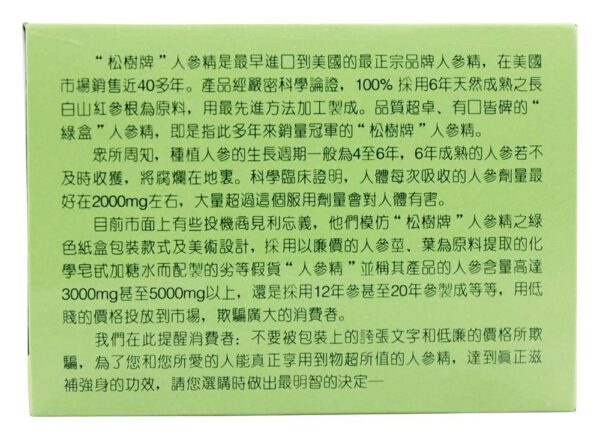 “松樹牌”人參精是最早進口到美國的最正宗品牌人參精，在美國
市場銷售近40多年。產品經嚴密科學論證，100% 採用6年天然成熟之長
白山紅參根為原料，用最先進方法加工製成。品質超卓、有口皆碑的“
綠盒”人參精，即是指此多年來銷量冠軍的“松樹牌”人參精。
眾所周知，種植人參的生長週期一般為4至6年，6年成熟的人參若不
及時收獲，將腐爛在地裏。科學臨床證明，人體每次吸收的人參劑量最
好在2000mg左右，大量超過這個服用劑量會對人體有害。
目前市面上有些投機商見利忘義，他們模仿“松樹牌”人參精之綠
色紙盒包裝款式及美術設計，採用以廉價的人參莖、葉為原料提取的化
學皂甙加糖水而配製的劣等假貨“人參精”並稱其產品的人參含量高達
3000mg甚至5000mg以上，還是採用12年參甚至20年參製成等等，用低
賤的價格投放到市場，欺騙廣大的消費者。
我們在此提醒消費者：不要被包裝上的誇張文字和低廉的價格所欺
騙，為了您和您所愛的人能真正享用到物超所值的人參精，達到真正滋
補強身的功效，請您選購時做出最明智的決定—